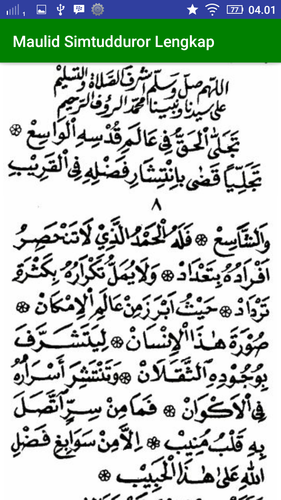 77 04.01
Maulid Simtudduror Lengkap
اَللّٰهُمَّ صَلِّ وَسَلِّمْ اَشْرَفَ الصَّلَاةِ وَالتَّسْلِيْمِ
عَلَى سَيِّدِنَا وَنَبِيِّنَا مُحَمَّدٍ الرَّءُوْفِ الرَّحِيْمِ
تَجَلَّى الْحَقُّ فِي عَالَمِ قُدْسِهِ الْوَاسِعِ ۞
تَجَلِّيًا قَضَى بِانْتِشَارِ فَضْلِهِ فِي الْقَرِيْبِ
٨
وَالشَّاسِعِ ۞ فَلَهُ الْحَمْدُ الَّذِيْ لَا تَنْحَصِرُ
اَفْرَادُهُ بِتَعْدَادٍ ۞ وَلَا يَمَلُّ تَكْرَارُهُ بِكَثْرَةِ
تَرْدَادٍ ۞ حَيْثُ اَبْرَزَ مِنْ عَالَمِ الْاِمْكَانِ ۞
صُوْرَةَ هٰذَا الْاِنْسَانِ ۞ لِيَتَشَرَّفَ
بِوُجُوْدِهِ الثَّقَلَانِ ۞ وَتَنْتَشِرَ اَسْرَارُهُ
فِي الْاَكْوَانِ ۞ فَمَا مِنْ سِرٍّ اتَّصَلَ
بِهِ قَلْبُ مُنِيْبٍ ۞ اِلَّا مِنْ سَوَابِغِ فَضْلِ
اللهِ عَلَى هٰذَا الْحَبِيْبِ ۞